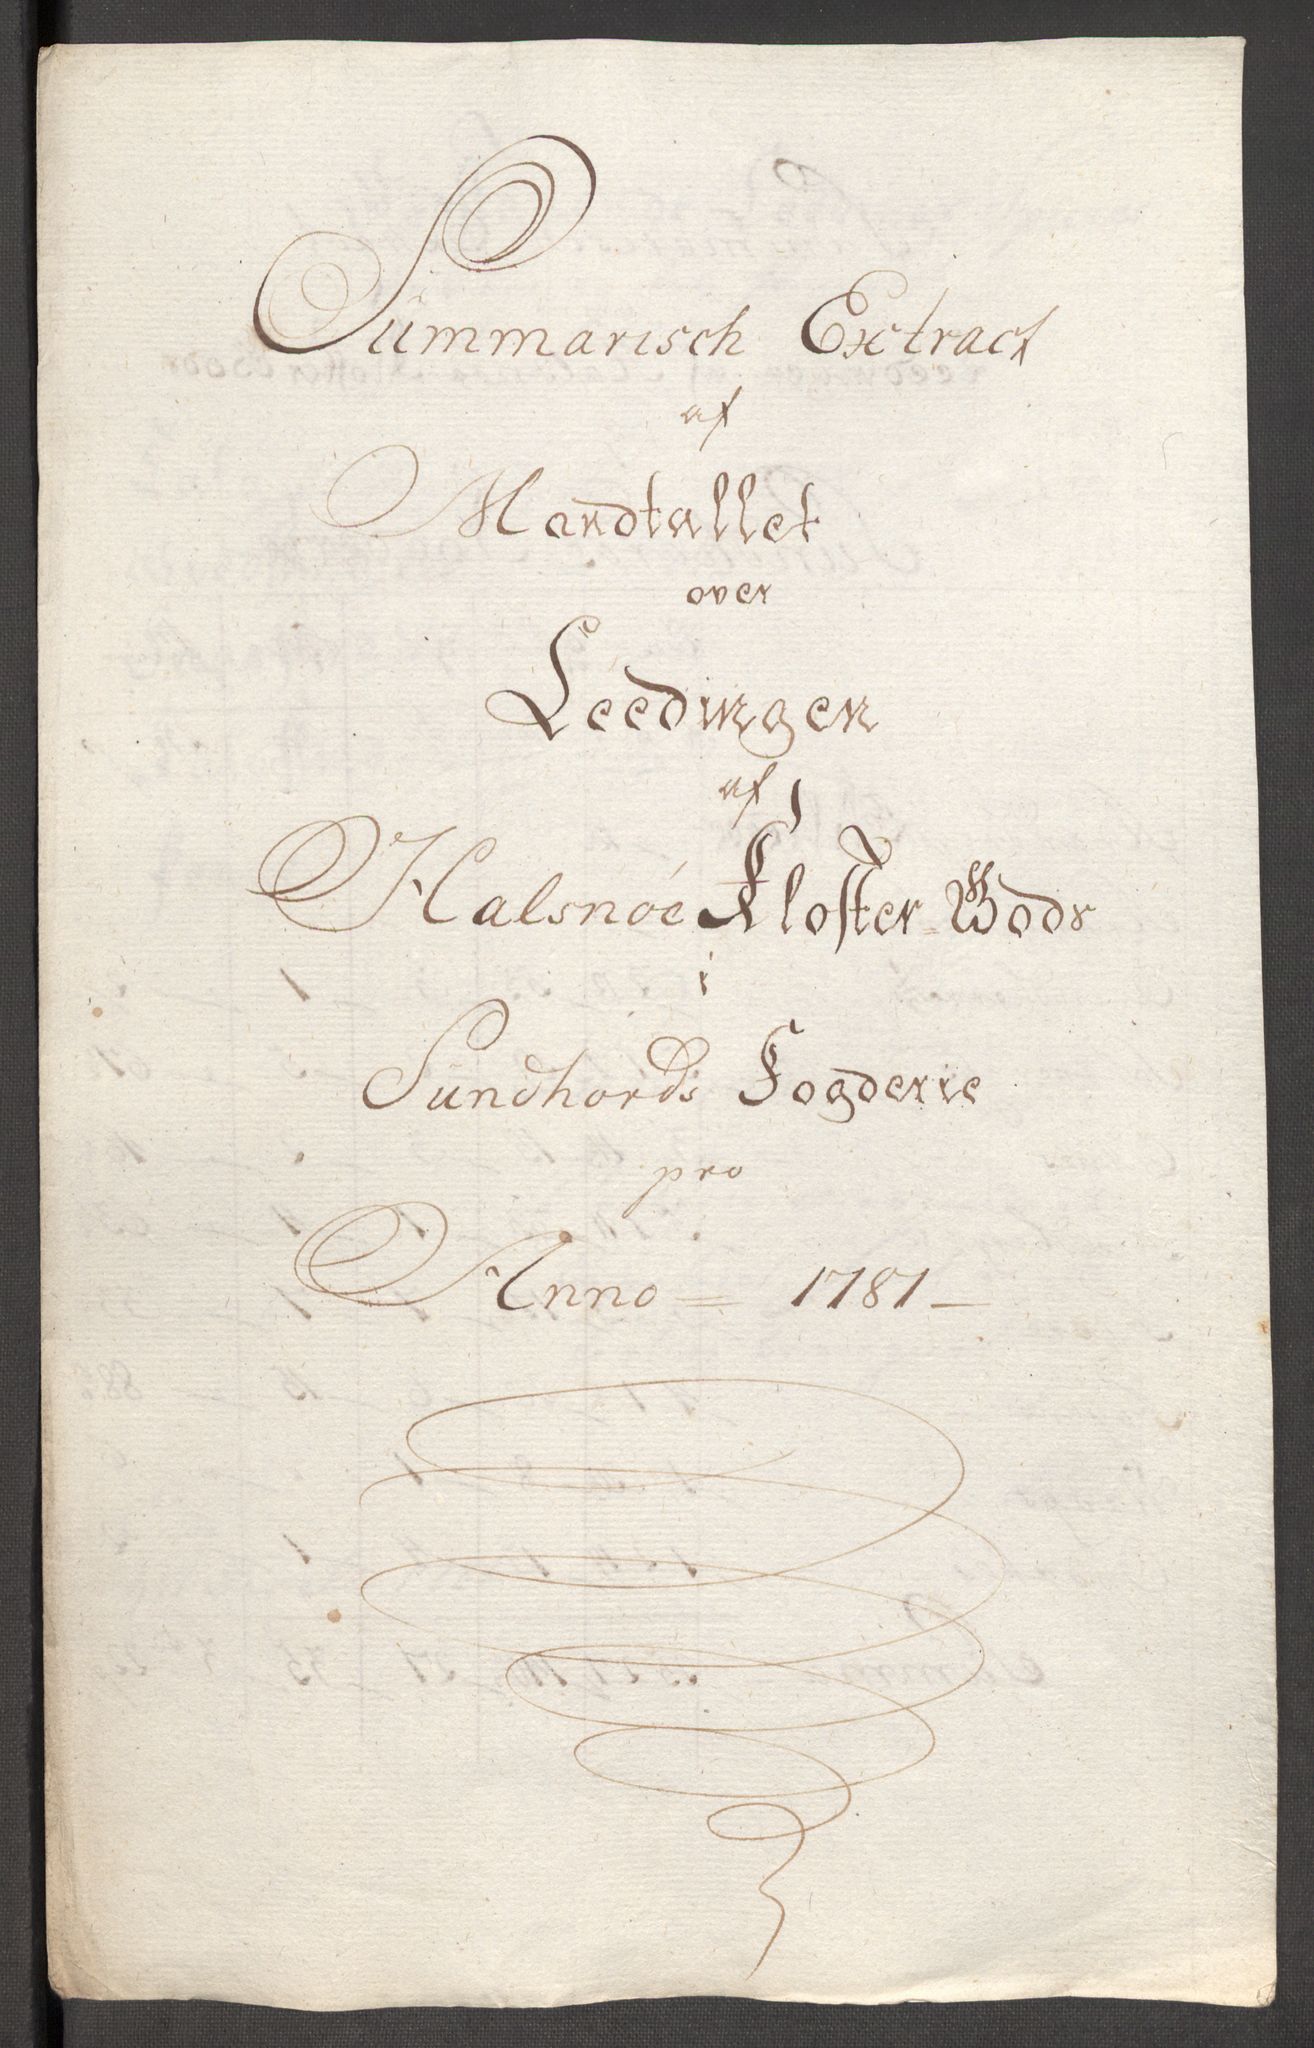 Summarisch Extract
af
Mandtallet
over
Leedingen
af
Halsnöe Kloster Gods
i
Sundhords Fogderie
pro
Anno = 1781 –